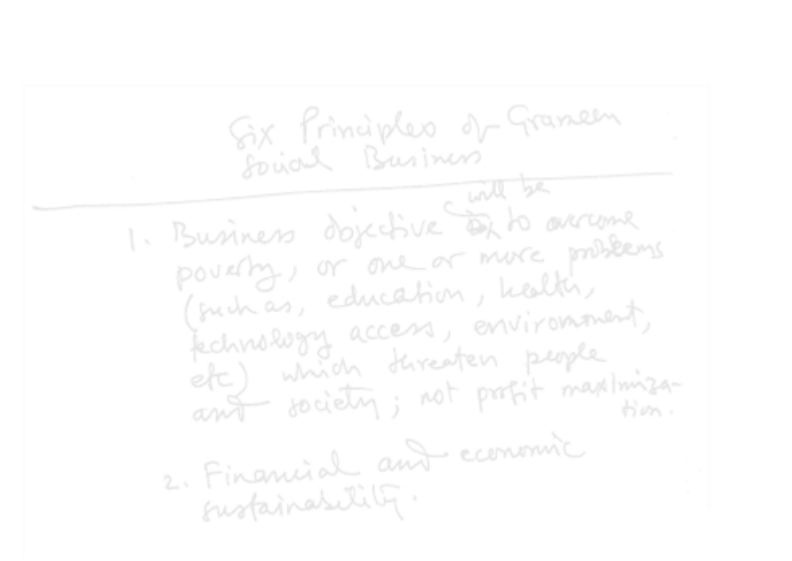 Six Principles of Grameen
Social Business
will be
1. Business objective to overcome
poverty, or one or more problems
(such as, education, health,
technology access, environment,
etc) which threaten people
and society; not profit maximiza-
tion.
2. Financial and economic
sustainability.